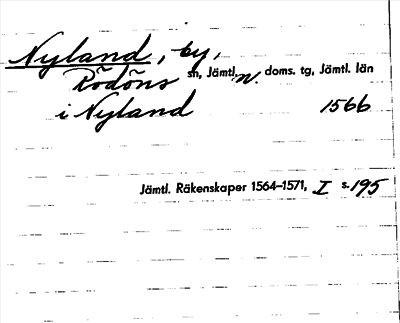 Nyland, by,
Rödöns sn, Jämtl. n. doms. tg, Jämtl. län
i Nyland 1566
Jämtl. Räkenskaper 1564–1571, I s. 195